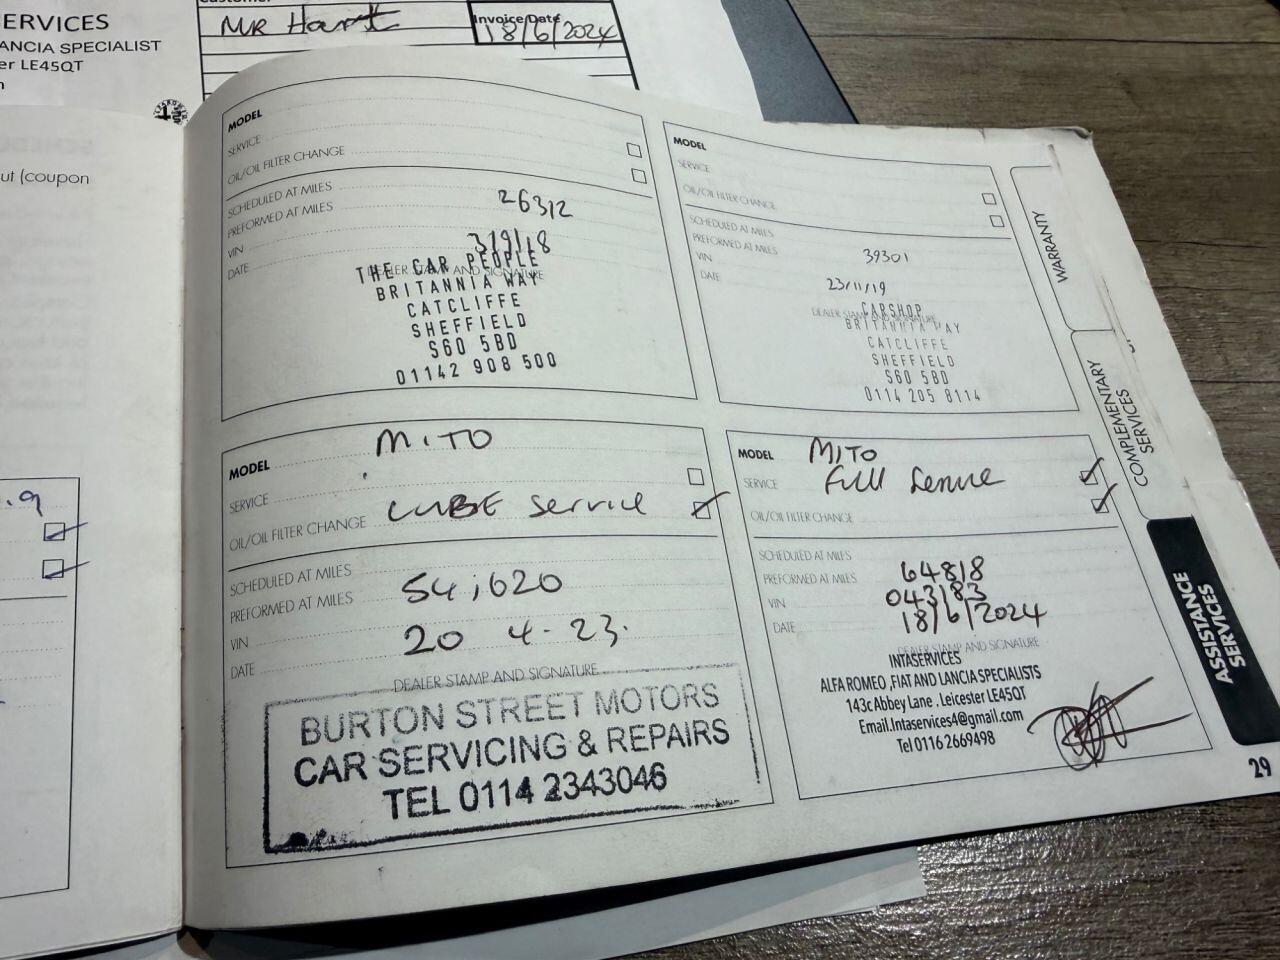 ERVICES
ANCIA SPECIALIST
er LE45QT
MR Harrt
Invoice Date
18/6/2024
ut (coupon
.9
MODEL
SERVICE
OIL/OIL FILTER CHANGE
SCHEDULED AT MILES
PREFORMED AT MILES 26312
VIN
DATE 3/9/18
DEALER STAMP AND SIGNATURE
THE CAR PEOPLE
BRITANNIA WAY
CATCLIFFE
SHEFFIELD
S60 5BD
01142 908 500
MODEL
SERVICE
OIL/OIL FILTER CHANGE
SCHEDULED AT MILES
PREFORMED AT MILES 39301
VIN
DATE 23/11/19
DEALER STAMP AND SIGNATURE
CARSHOP
BRITANNIA WAY
CATCLIFFE
SHEFFIELD
S60 5BD
0114 205 8114
MODEL MITO
SERVICE
OIL/OIL FILTER CHANGE LUBE Service
SCHEDULED AT MILES
PREFORMED AT MILES 54,620
VIN
DATE 20 4-23.
DEALER STAMP AND SIGNATURE
BURTON STREET MOTORS
CAR SERVICING & REPAIRS
TEL 0114 2343046
MODEL MITO
SERVICE Full Service
OIL/OIL FILTER CHANGE
SCHEDULED AT MILES
PREFORMED AT MILES 64818
VIN 043183
DATE 18/6/2024
DEALER STAMP AND SIGNATURE
INTASERVICES
ALFA ROMEO ,FIAT AND LANCIA SPECIALISTS
143c Abbey Lane . Leicester LE45QT
Email.Intaservices4@gmail.com
Tel 0116 2669498
WARRANTY
COMPLEMENTARY
SERVICES
ASSISTANCE
SERVICES
29